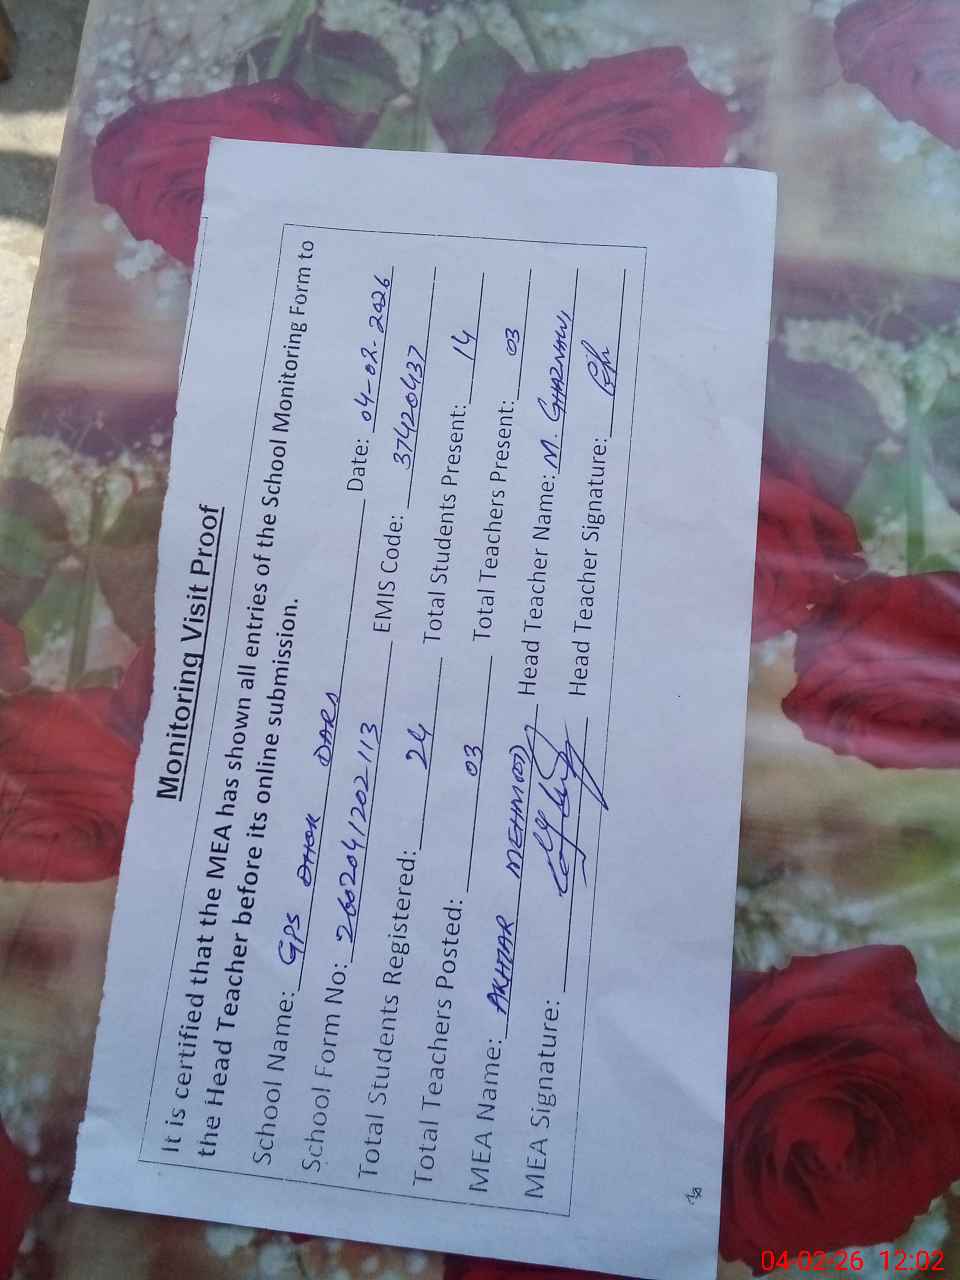 Monitoring Visit Proof
It is certified that the MEA has shown all entries of the School Monitoring Form to
the Head Teacher before its online submission.
School Name: GPS DHOK DARS Date: 04-02-2026
School Form No: 2602041202113 EMIS Code: 37420437
Total Students Registered: 24 Total Students Present: 14
Total Teachers Posted: 03 Total Teachers Present: 03
MEA Name: AKHTAR MEHMOOD Head Teacher Name: M. GHAZNAVI
MEA Signature: Head Teacher Signature:
04-02-26 12:02